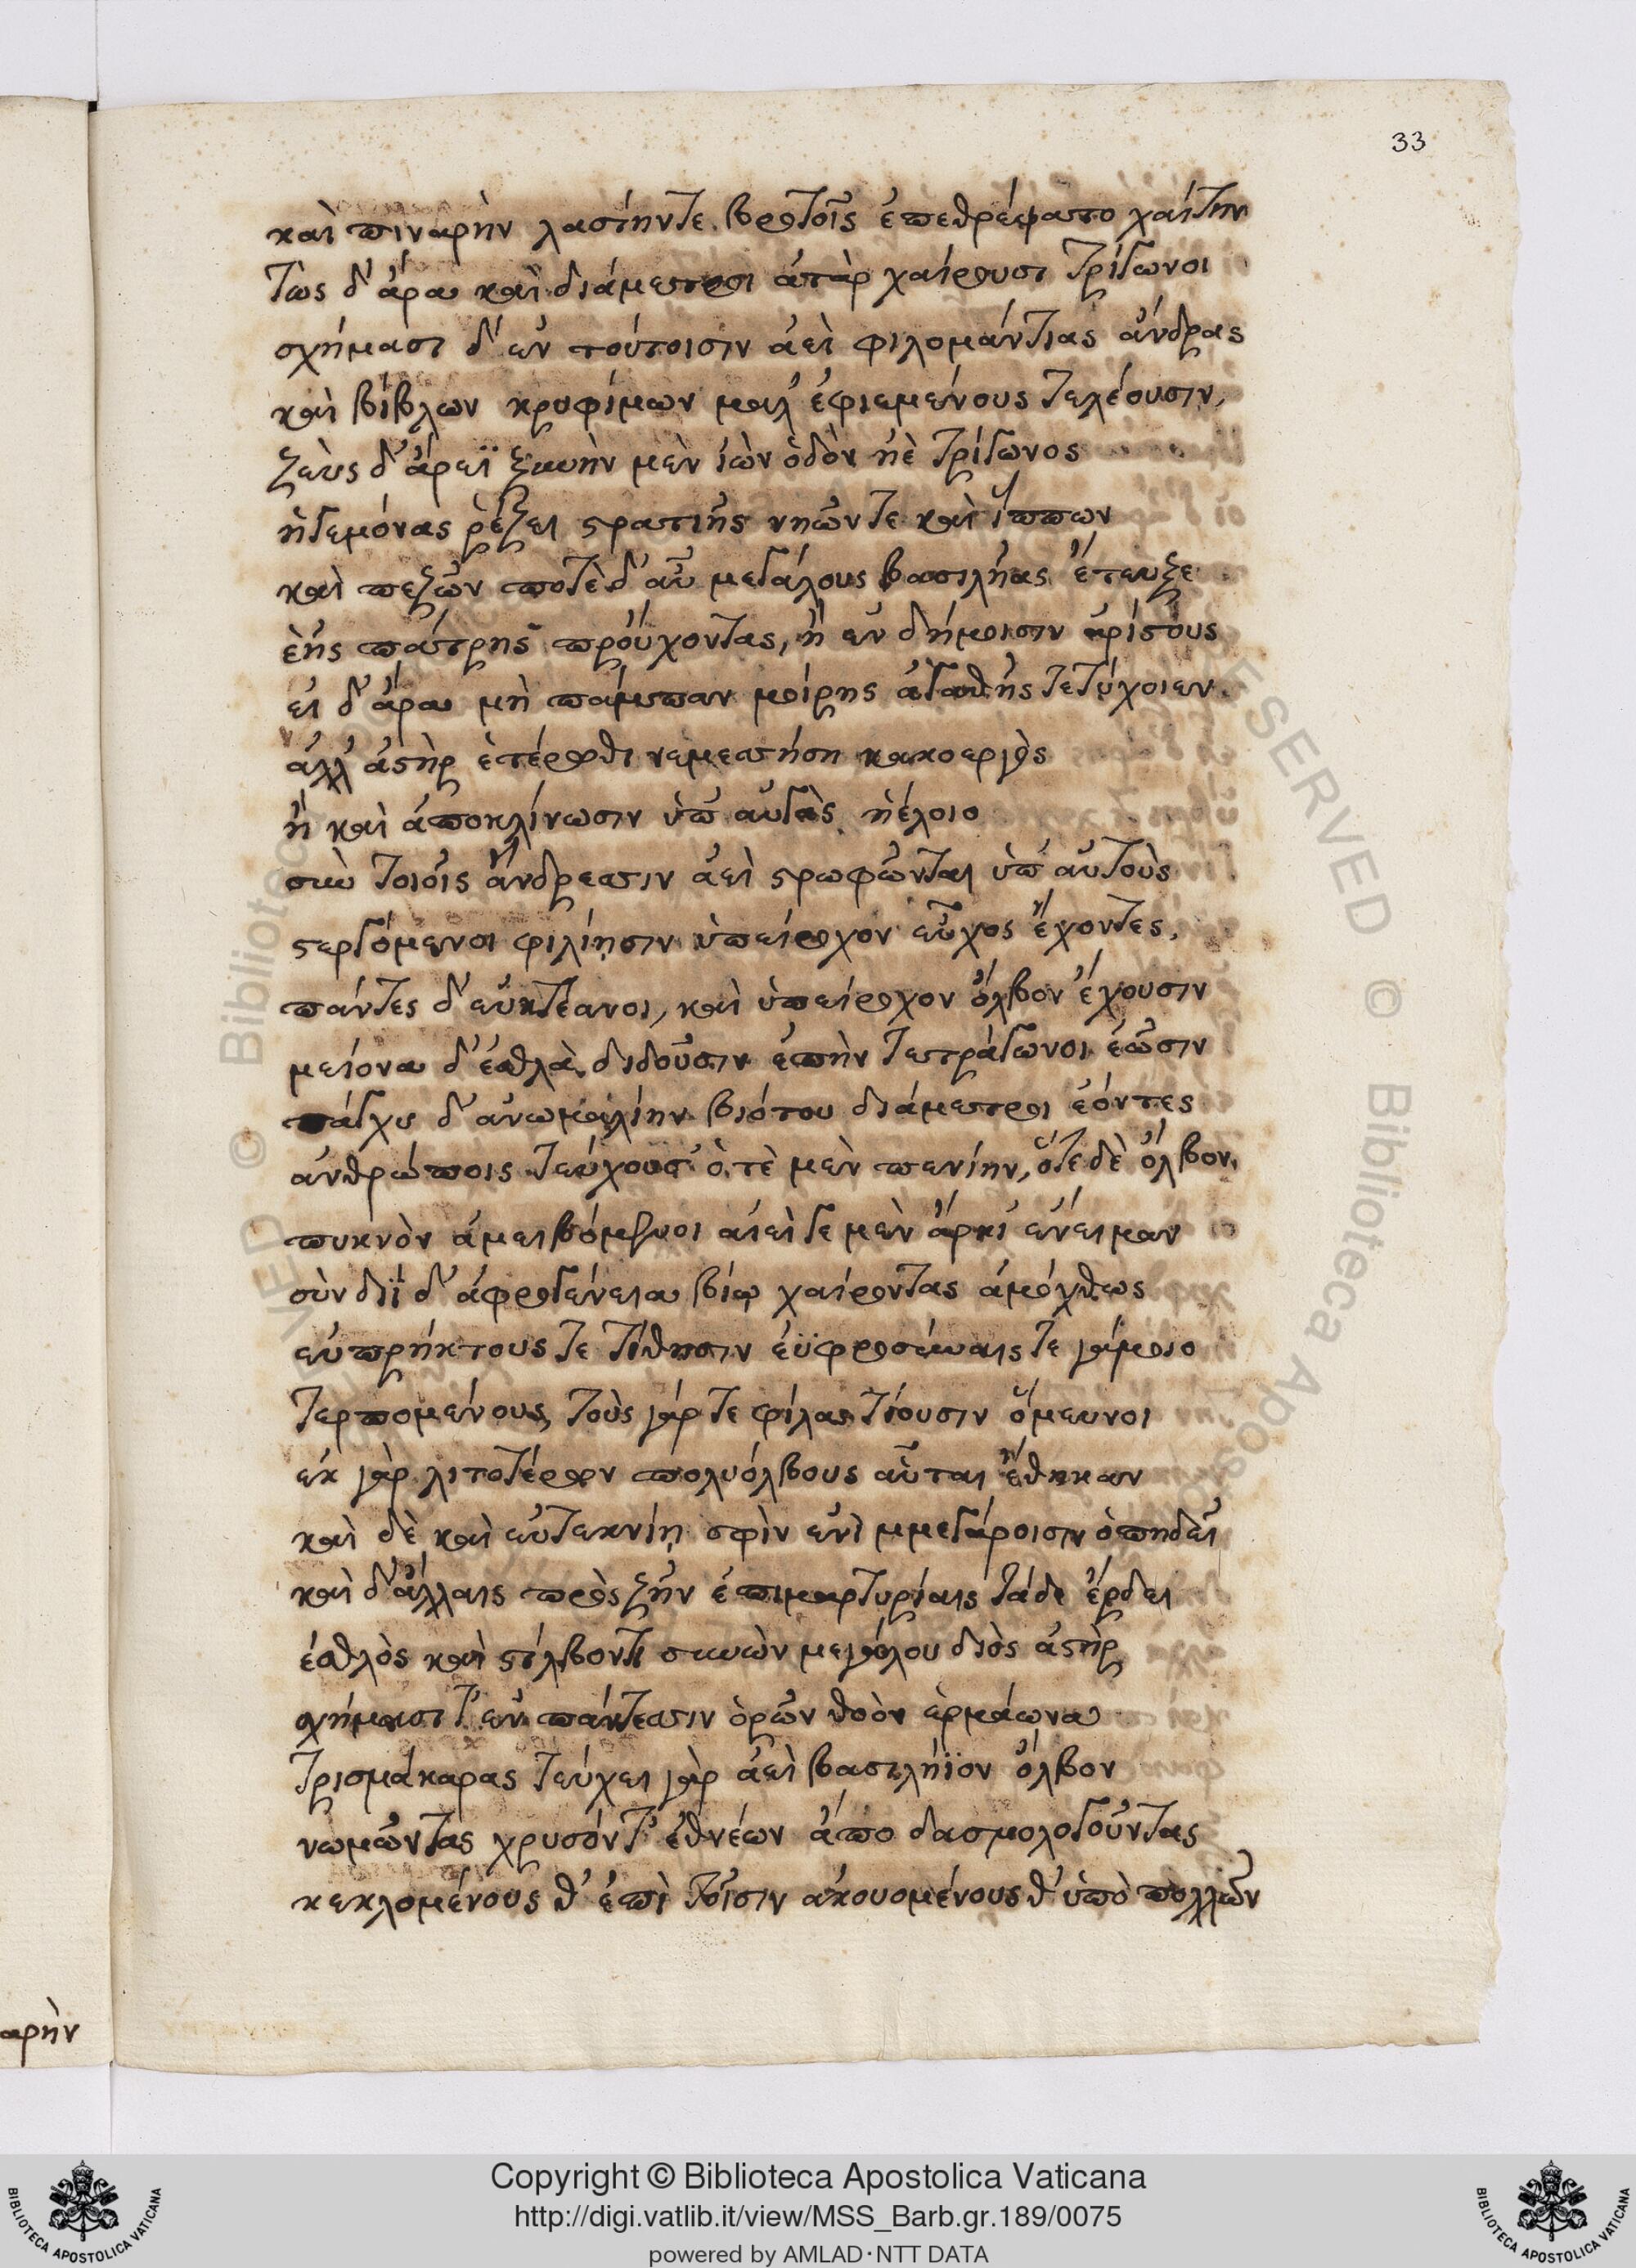 33
καὶ πιναρὴν λασίην τε βροτοῖς ἐπεθρέψατο χαίτην
τὼς δ' ἄρα καὶ διάμετροι ἀτὰρ χαίρουσι τρίγωνοι
σχήμασι δ' ἐν τούτοισιν ἀεὶ φιλομάντιας ἄνδρας
καὶ βίβλων κροφίμων μάλ' ἐφιεμένους τελέουσιν,
ζεὺς δ' ἄρεϊ ξυνὴν μὲν ἰὼν ὁδὸν ἠὲ τρίγωνος
ἡγεμόνας ῥέζει στρατιῆς νηῶν τε καὶ ἵππων
καὶ πεζῶν ποτὲ δ' αὖ μεγάλους βασιλῆας ἔτευξε
ἑῆς πάτρης προὔχοντας, ἢ ἐν δήμοισιν ἀρίστους
εἰ δ' ἄρα μὴ πάμπαν μοίρης ἀγαθῆς τετύχοιεν.
ἀλλ' ἀστὴρ ἑτέρωθι νεμεσήση κακοεργὸς
ἢ καὶ ἀποκλίνωσιν ὑπ' αὐγὰς ἠέλοιο
σὺν τοιοῖς ἄνδρεσσιν ἀεὶ στρωφῶνται ὑπ' αὐτοὺς
στεργόμενοι φιλίῃσιν ὑπείροχον εὖχος ἔχοντες,
πάντες δ' εὐκτέανοι, καὶ ὑπείροχον ὄλβον ἔχουσιν
μείονα δ' ἐσθλὰ διδοῦσιν ἐπὴν τετράγωνοι ἐῶσιν
πάγχυ δ' ἀνωμαλίην βιότου διάμετροι ἐόντες
ἀνθρώποις τεύχουσ' ὁτὲ μὲν πενίην, ὅτε δὲ ὄλβον.
πυκνὸν ἀμειβόμενοι αἰεὶ γε μὲν ἄρκι' ἔνειμαν
σὺν διῒ δ' ἀφρογένεια βίῳ χαίροντας ἀμόχθως
εὐπρήκτους τε τίθησιν ἐϋφροσύναις τε γάμοιο
τερπομένους, τοὺς γάρ τε φίλας τίουσιν ὅμευνοι
ἐκ γὰρ λιτοτέρων πολυόλβους αὗται ἔθηκαν
καὶ δὲ καὶ εὐτεκνίῃ σφὶν ἐνὶ μμεγάροισιν ὀπηδεῖ
καὶ δ' ἄλλαις πρὸς ζῆν ἐπιμαρτυρίαις τάδε ἔρδει
ἐσθλὸς καὶ στίλβοντι συνὼν μεγάλου διὸς ἀστὴρ
σχήμασι τ' ἐν πάντεσσιν ὁρῶν θοὸν ἑρμάωνα
τρισμάκαρας τεύχει γὰρ ἀεὶ βασιλήϊον ὄλβον
νωμῶντας χρυσόν τ' ἐθνέων ἄπο δασμολογοῦντας
κεκλομένους θ' ἐπὶ τοῖσιν ἀκουομένους θ' ὑπὸ πολλῶν
αρὴν
Copyright © Biblioteca Apostolica Vaticana
http://digi.vatlib.it/view/MSS_Barb.gr.189/0075
powered by AMLAD·NTT DATA
BIBLIOTECA APOSTOLICA VATICANA
BIBLIOTECA APOSTOLICA VATICANA